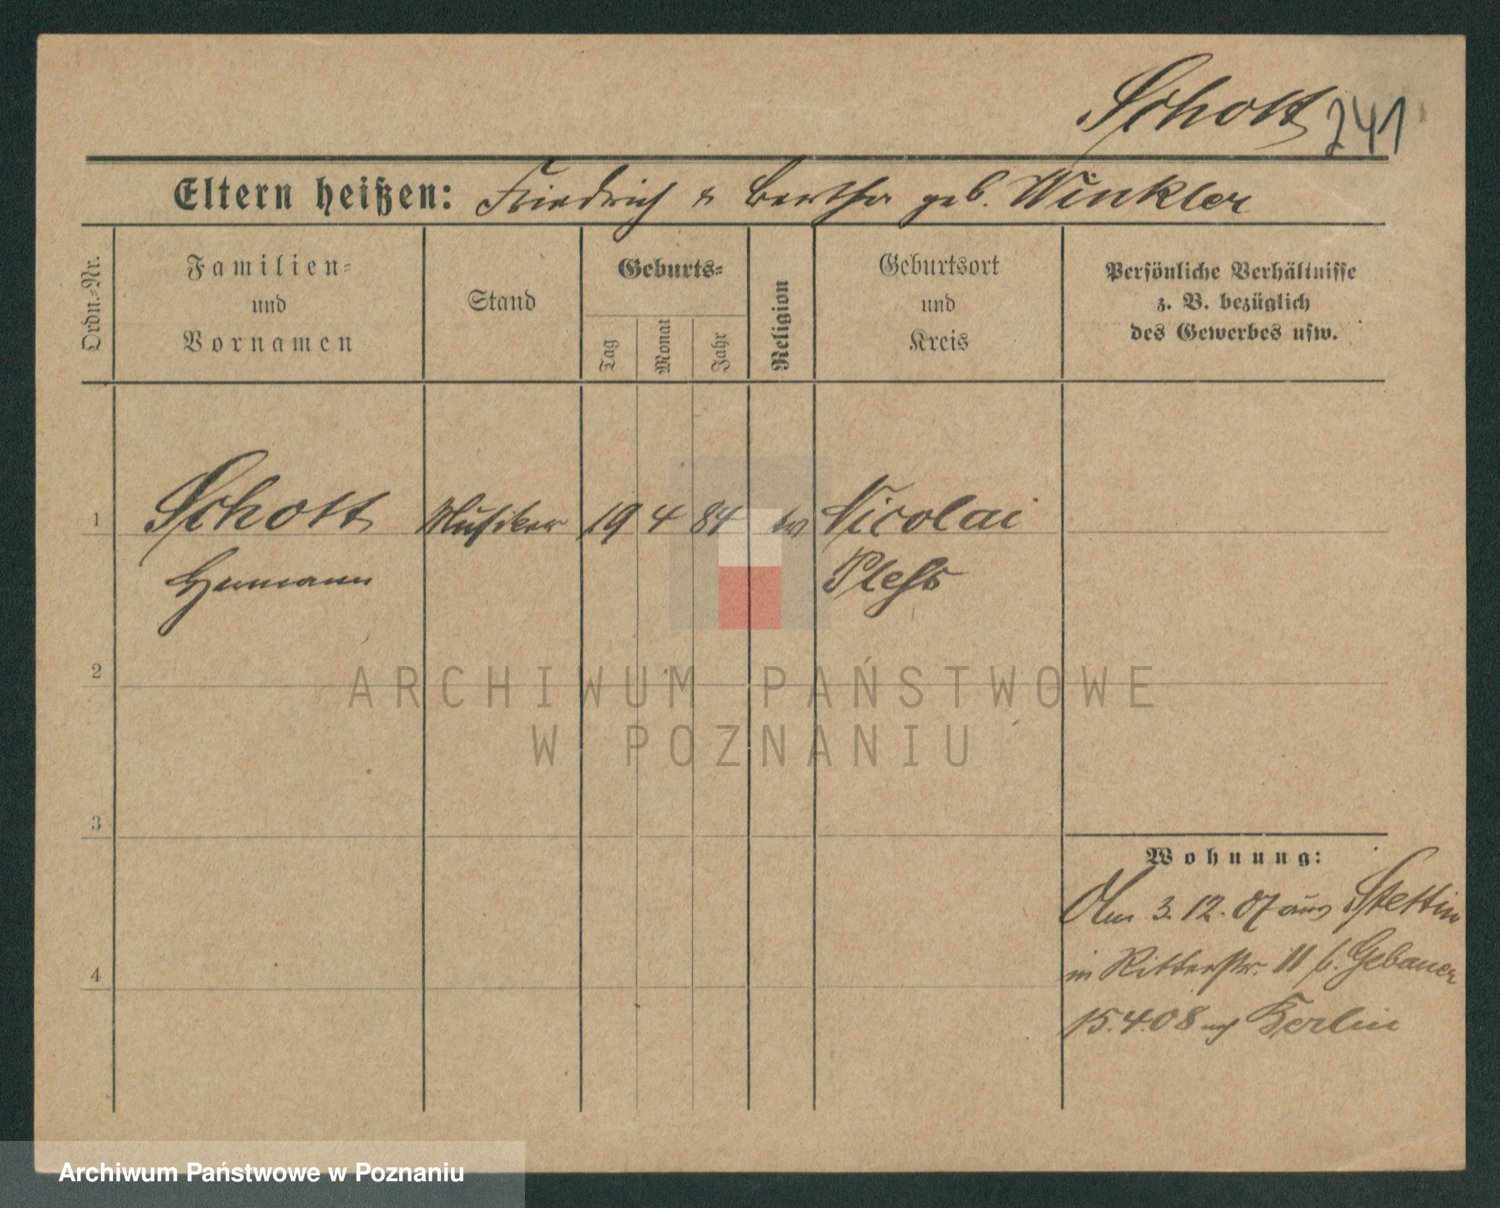 Schott 241
Eltern heißen: Friedrich & Bertha geb. Winkler
Ordn.-Nr.
Familien-
und
Vornamen
Stand
Geburts-
Tag
Monat
Jahr
Religion
Geburtsort
und
Kreis
Persönliche Verhältnisse
z. B. bezüglich
des Gewerbes usw.
1 Schott Musiker 19 4 84 ev Nicolai
Hermann Pleß
2
ARCHIWUM PAŃSTWOWE
W POZNANIU
3
Wohnung:
Am 3. 12. 07 aus Stettin
in Ritterstr. 11 b. Gebauer
4
15.4.08 Berlin
Archiwum Państwowe w Poznaniu